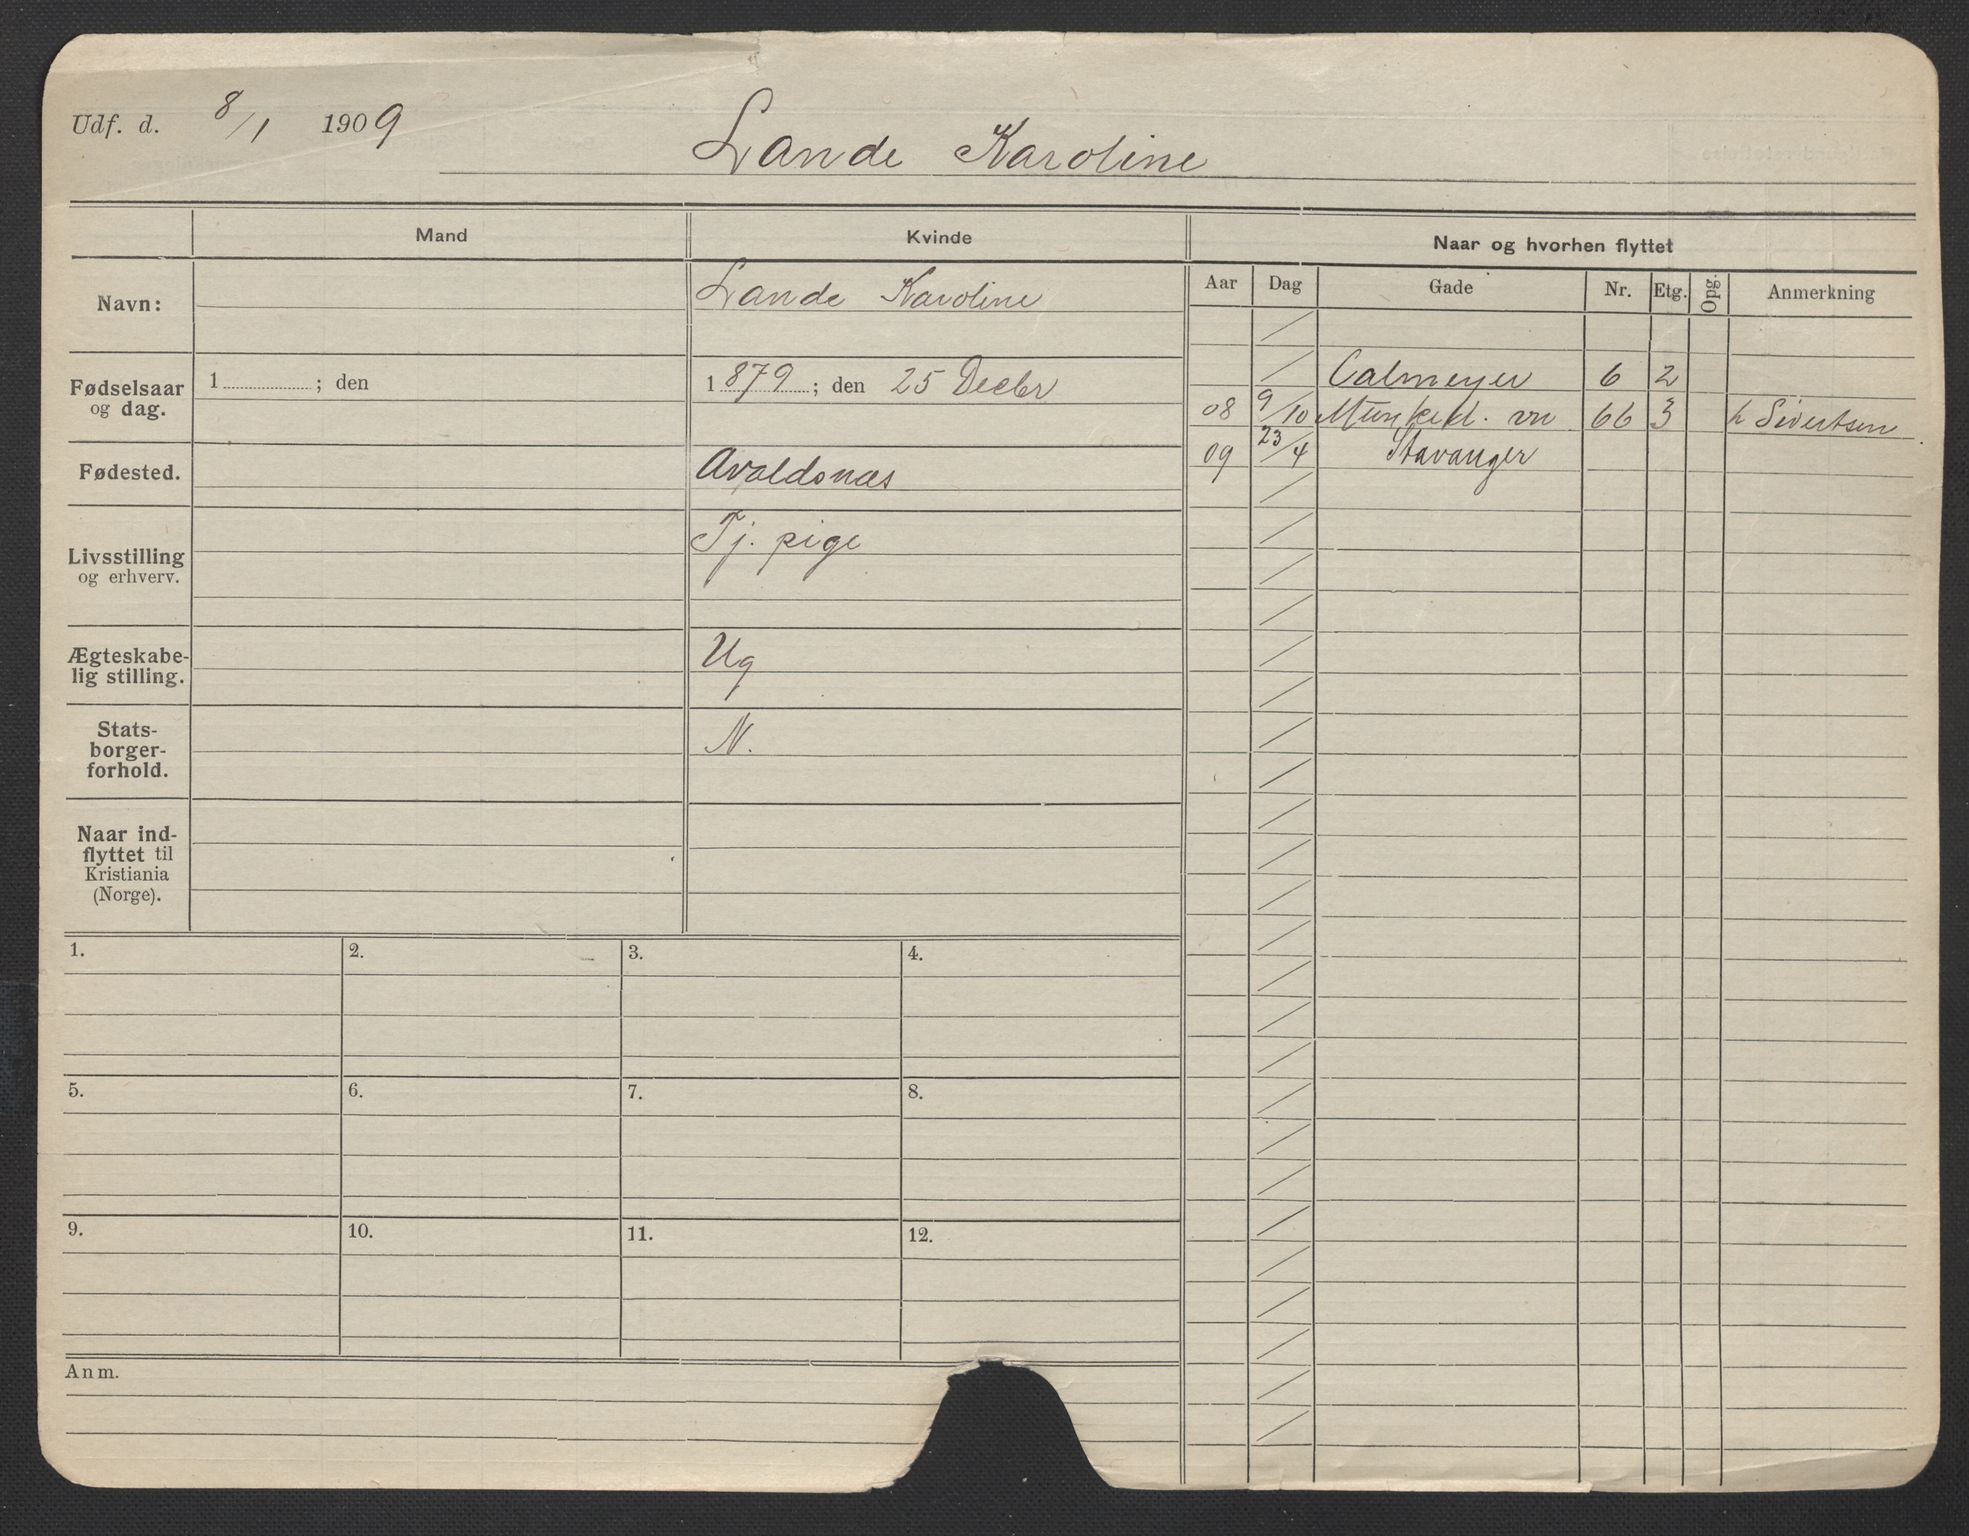 Udf. d. 8/1 1909
Lande Karoline
Mand Kvinde Naar og hvorhen flyttet
Aar Dag Gade Nr. Etg. Opg. Anmerkning
Navn: Lande Karoline
Fødselsaar og dag. 1 ; den 1879 ; den 25 Decbr
Fødested. Avaldsnæs
Livsstilling og erhverv. Tj. pige
Ægteskabe-
lig stilling. Ug
Stats-
borger-
forhold. N.
Naar ind-
flyttet til
Kristiania
(Norge).
Calmeyer 6 2
08 9/10 Munked. vn 66 3 h Sivertsen
09 23/4 Stavanger
1. 2. 3. 4.
5. 6. 7. 8.
9. 10. 11. 12.
Anm.